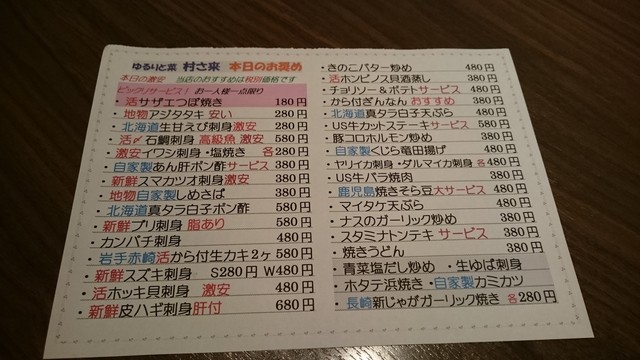 ゆるりと菜 村さ来 本日のお奨め
本日の激安 当店のおすすめは税別価格です
ビックリサービス！ お一人様一点限り
・活サザエつぼ焼き 180円
・地物アジタタキ 安い 280円
・北海道生甘えび刺身激安 280円
・活〆石鯛刺身 高級魚 激安 580円
・激安イワシ刺身・塩焼き 各280円
・自家製あん肝ポン酢サービス 380円
・新鮮スマカツオ刺身激安 380円
・地物自家製しめさば 380円
・北海道真タラ白子ポン酢 580円
・新鮮ブリ刺身 脂あり 580円
・カンパチ刺身 480円
・岩手赤崎活から付生カキ2ヶ 580円
・新鮮スズキ刺身 S280円 W480円
・活ホッキ貝刺身 激安 480円
・新鮮皮ハギ刺身肝付 680円
・きのこバター炒め 480円
・活ホンビノス貝酒蒸し 380円
・チョリソー&ポテトサービス 480円
・から付ぎんなん おすすめ 380円
・北海道真タラ白子天ぷら 480円
・US牛カットステーキサービス 580円
・豚コロホルモン炒め 380円
・自家製くじら竜田揚げ 480円
・ヤリイカ刺身・ダルマイカ刺身 各480円
・US牛バラ焼肉 380円
・鹿児島焼きそら豆大サービス 480円
・マイタケ天ぷら 480円
・ナスのガーリック炒め 380円
・スタミナトンテキ サービス 380円
・焼きうどん 380円
・青菜塩だし炒め ・生ゆば刺身
・ホタテ浜焼き ・自家製カミカツ
・長崎新じゃがガーリック焼き 各280円